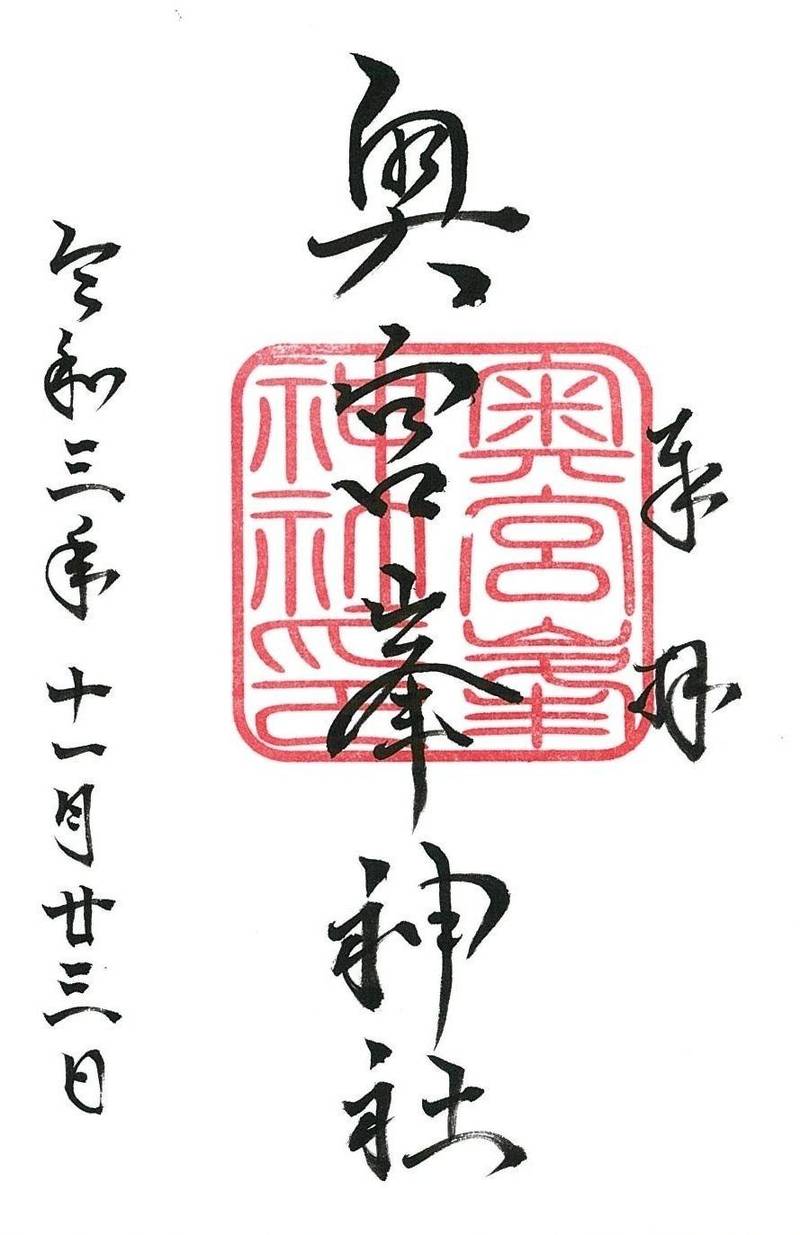 奉拝
奥宮峯神社
奥宮峯
神社印
令和三年十一月廿三日